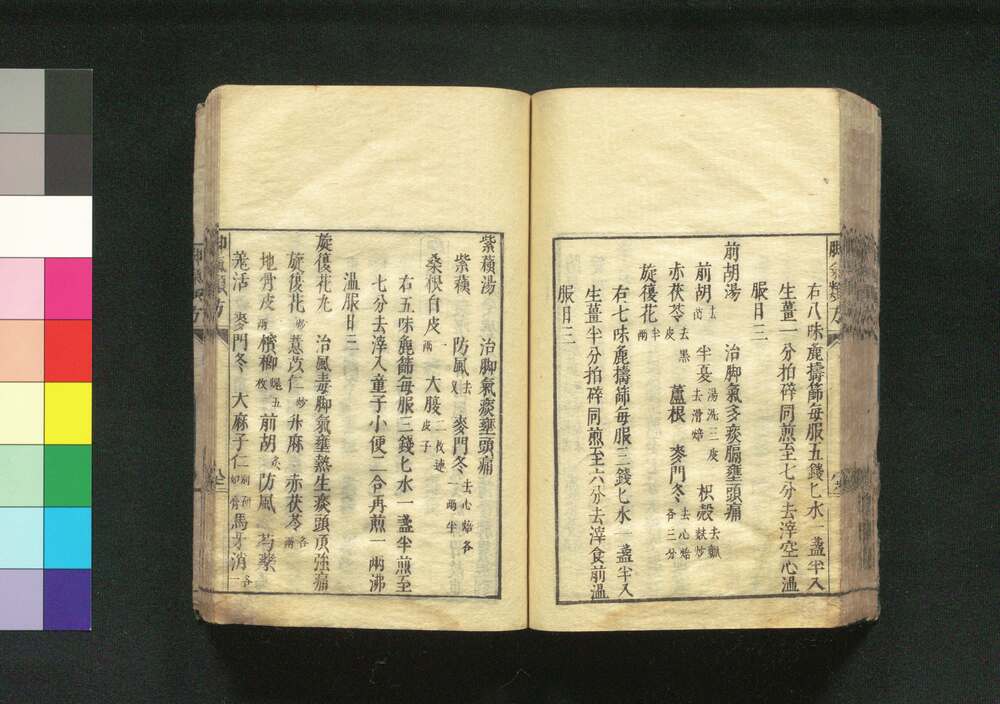 脚氣類方
右八味麁擣篩每服五錢匕水一盞半入
生薑一分拍碎同煎至七分去滓空心溫
服日三
前胡湯 治脚氣多痰膈壅頭痛
前胡 半夏湯洗三度去滑焙 枳殼去瓤麩炒
赤茯苓去黑皮 蘆根 麥門冬去心焙各三分
旋復花半兩
右七味麁擣篩每服三錢匕水一盞半入
生薑半分拍碎同煎至六分去滓食前溫
服日三
紫蘓湯 治脚氣痰壅頭痛
紫蘓 防風去叉 麥門冬去心焙各一兩半
桑根白皮一兩 大腹二枚連皮子
右五味麁篩每服三錢匕水一盞半煎至
七分去滓入童子小便二合再煎一兩沸
溫服日三
旋復花丸 治風毒脚氣壅熱生痰頭項強痛
旋復花炒 薏苡仁炒 升麻 赤茯苓各兩
地骨皮兩 檳榔煨五枚 前胡炙 防風 芎藭
羗活 麥門冬 大麻子仁別研如膏 馬牙消各一
脚氣類方